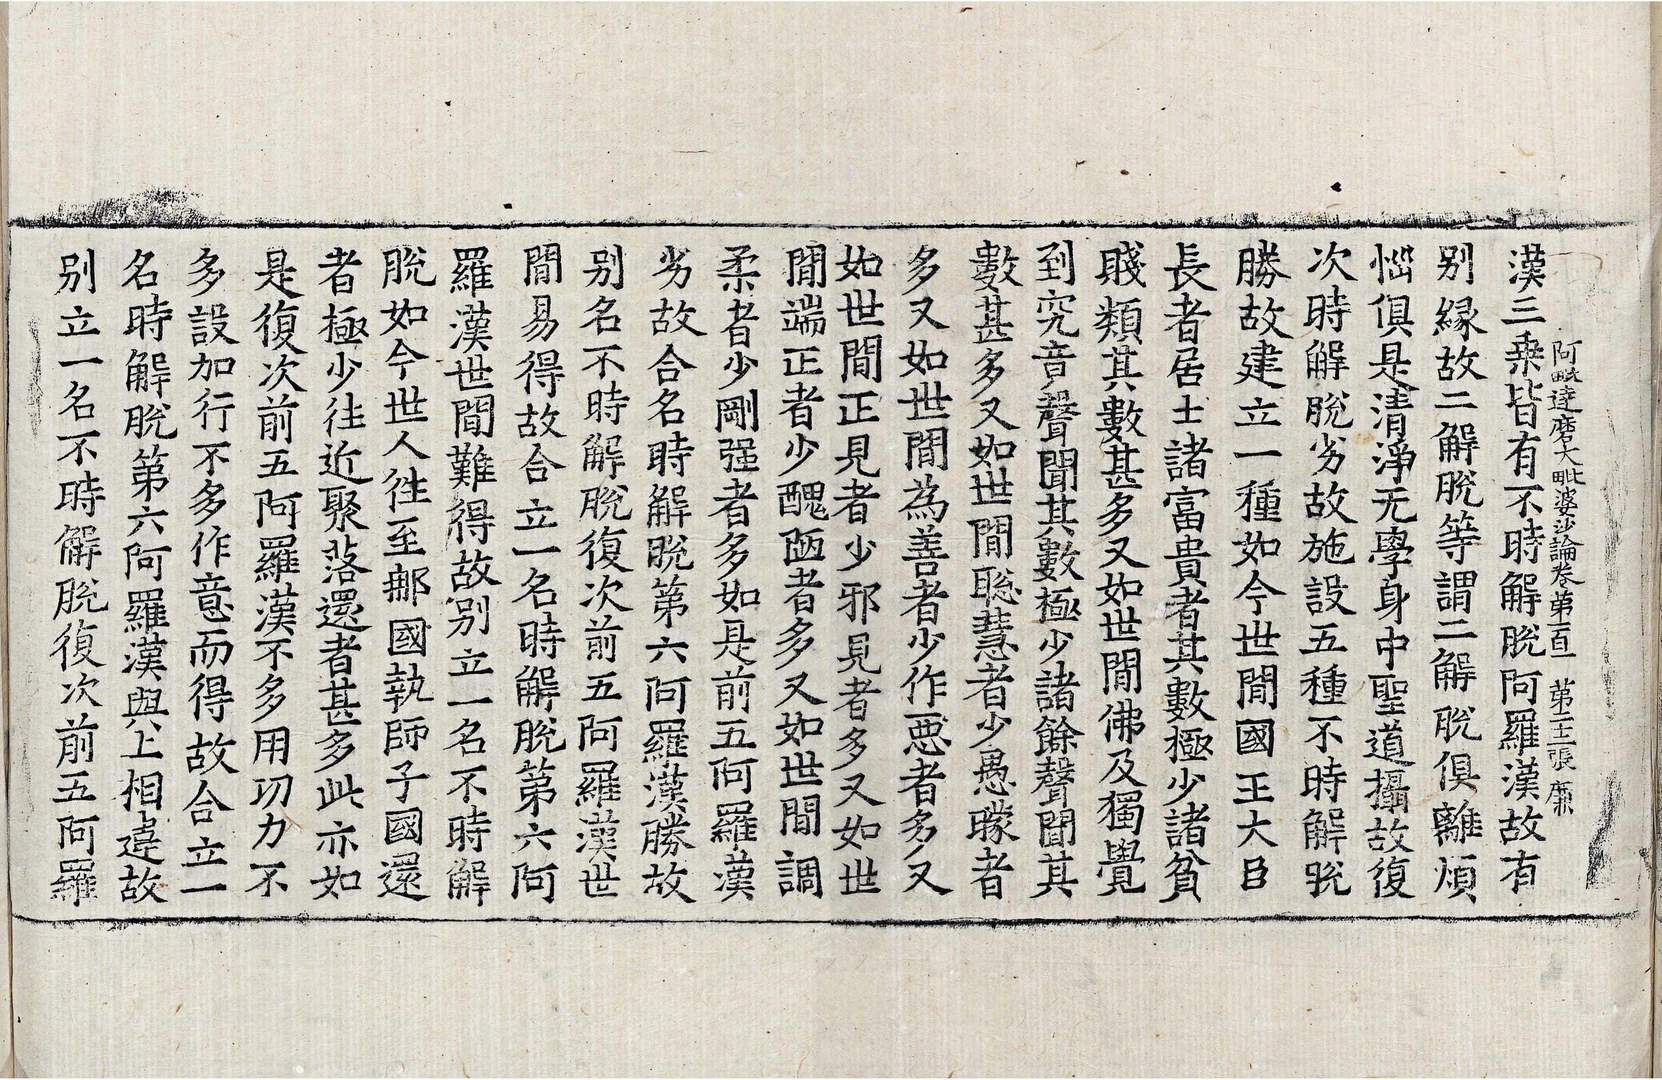 阿毗達磨大毗婆沙論卷第一百一　第二十三張　廉
漢三乘皆有不時解脫阿羅漢故有
别縁故二解脫等謂二解脫俱離煩
惱俱是清淨无學身中聖道攝故復
次時解脫劣故施設五種不時解脫
勝故建立一種如今世間國王大臣
長者居士諸富貴者其數極少諸貧
賤類其數甚多又如世間佛及獨覺
到究音聲聞其數極少諸餘聲聞其
數甚多又如世間聡慧者少愚矇者
多又如世間為善者少作悪者多又
如世間正見者少邪見者多又如世
間端正者少醜陋者多又如世間調
柔者少剛强者多如是前五阿羅漢
劣故合名時解脫第六阿羅漢勝故
别名不時解脫復次前五阿羅漢世
間易得故合立一名時解脫第六阿
羅漢世間難得故别立一名不時解
脫如今世人徃至郍國執師子國還
者極少徃近聚落還者甚多此亦如
是復次前五阿羅漢不多用功力不
多設加行不多作意而得故合立一
名時解脫第六阿羅漢與上相違故
别立一名不時解脫復次前五阿羅